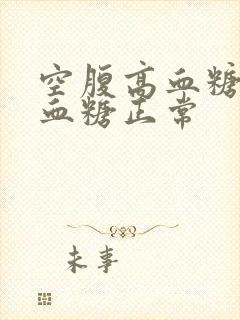 空腹高血糖
血糖正常
未事